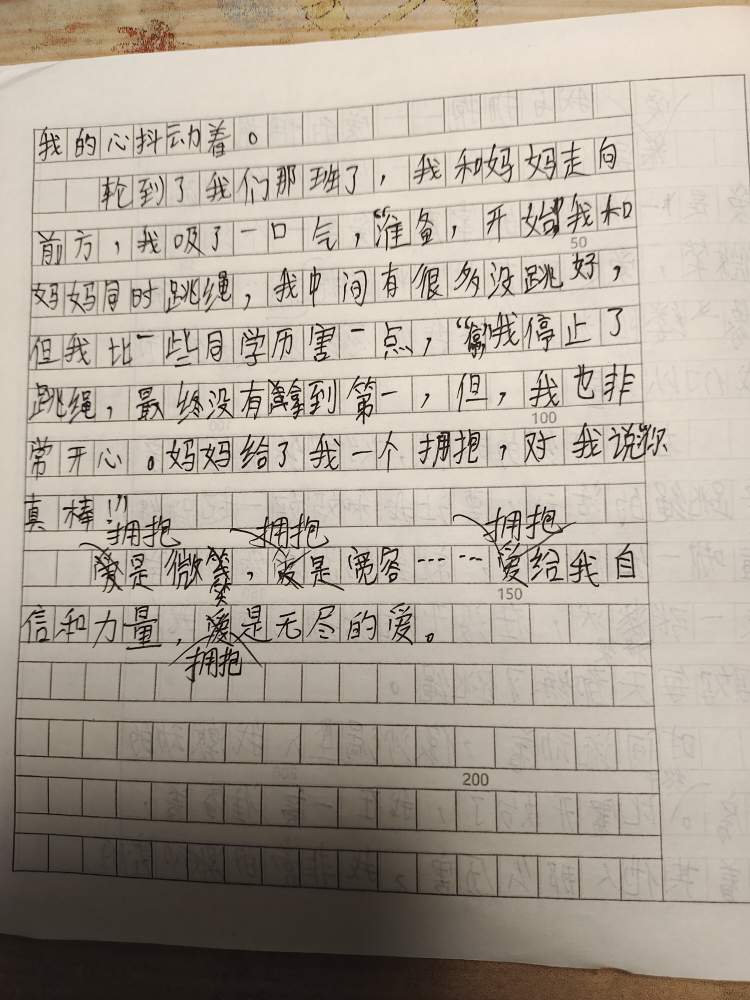 我的心抖动着。
轮到了我们那班了，我和妈妈走向
前方，我吸了一口气，“准备，开始”我和
50
妈妈同时跳绳，我中间有很多没跳好，
但我比一些同学历害一点，“我停止了
跳绳，最终没有拿到第一，但，我也非
100
常开心。妈妈给了我一个拥抱，对我说“你
真棒！”
拥抱 拥抱 拥抱
是微笑，是宽容……给我自
150
信和力量，是无尽的爱。
拥抱
200